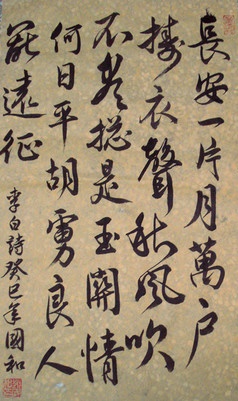 長安一片月萬戶
擣衣聲秋風吹
不盡摠是玉關情
何日平胡虜良人
罷遠征
李白詩癸巳年國和